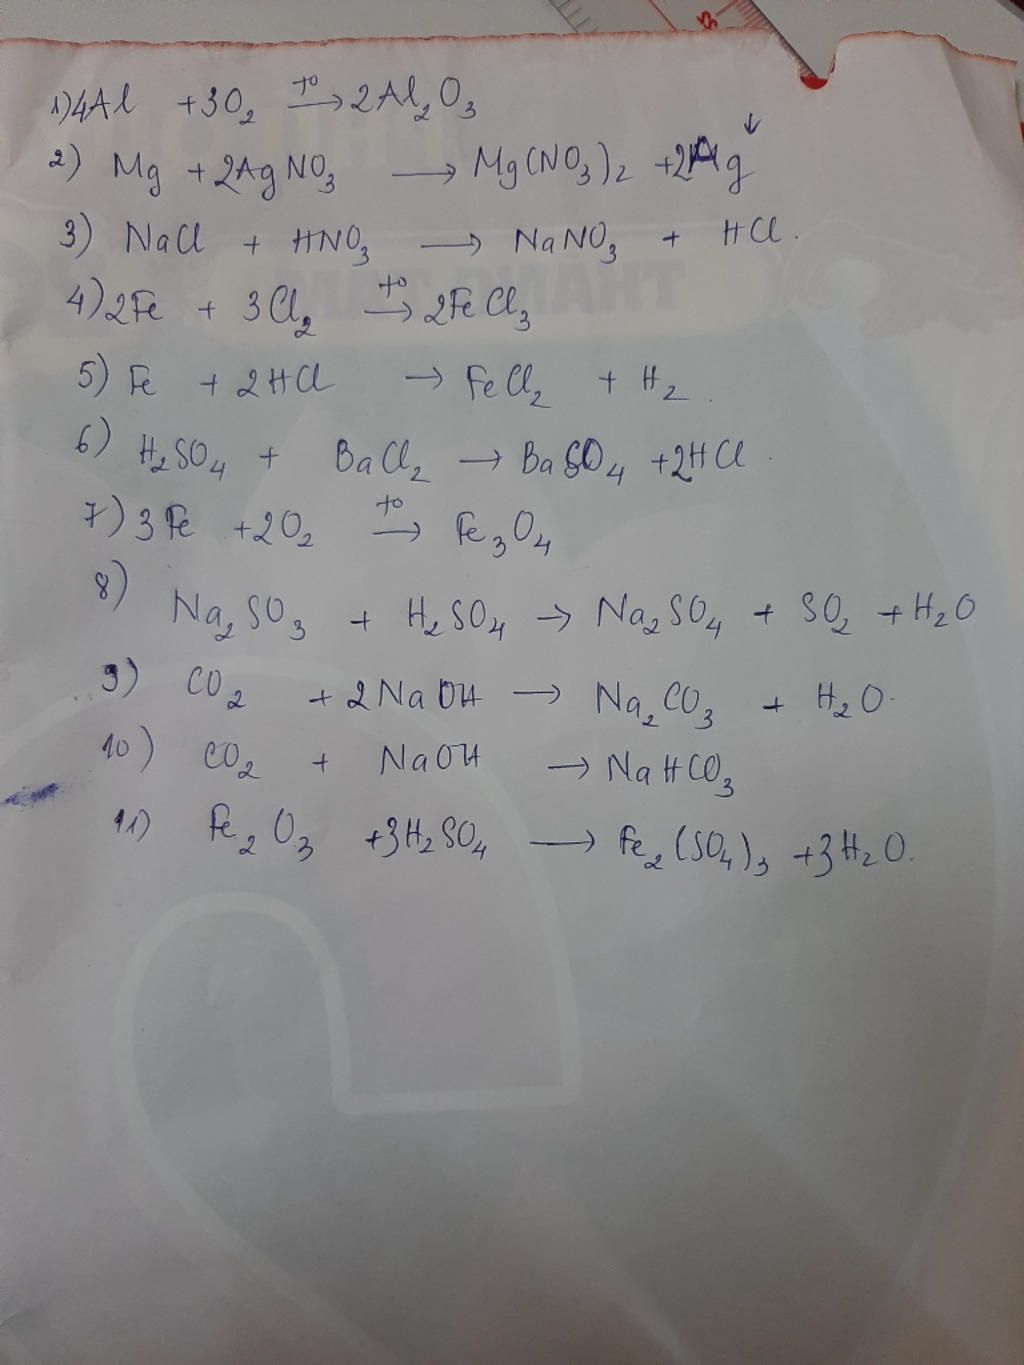 1) 4Al + 3O₂ →(t°) 2Al₂O₃
2) Mg + 2AgNO₃ → Mg(NO₃)₂ + 2Ag↓
3) NaCl + HNO₃ → NaNO₃ + HCl.
4) 2Fe + 3Cl₂ →(t°) 2FeCl₃
5) Fe + 2HCl → FeCl₂ + H₂.
6) H₂SO₄ + BaCl₂ → BaSO₄ + 2HCl.
7) 3Fe + 2O₂ →(t°) Fe₃O₄
8) Na₂SO₃ + H₂SO₄ → Na₂SO₄ + SO₂ + H₂O
9) CO₂ + 2NaOH → Na₂CO₃ + H₂O.
10) CO₂ + NaOH → NaHCO₃
11) Fe₂O₃ + 3H₂SO₄ → Fe₂(SO₄)₃ + 3H₂O.